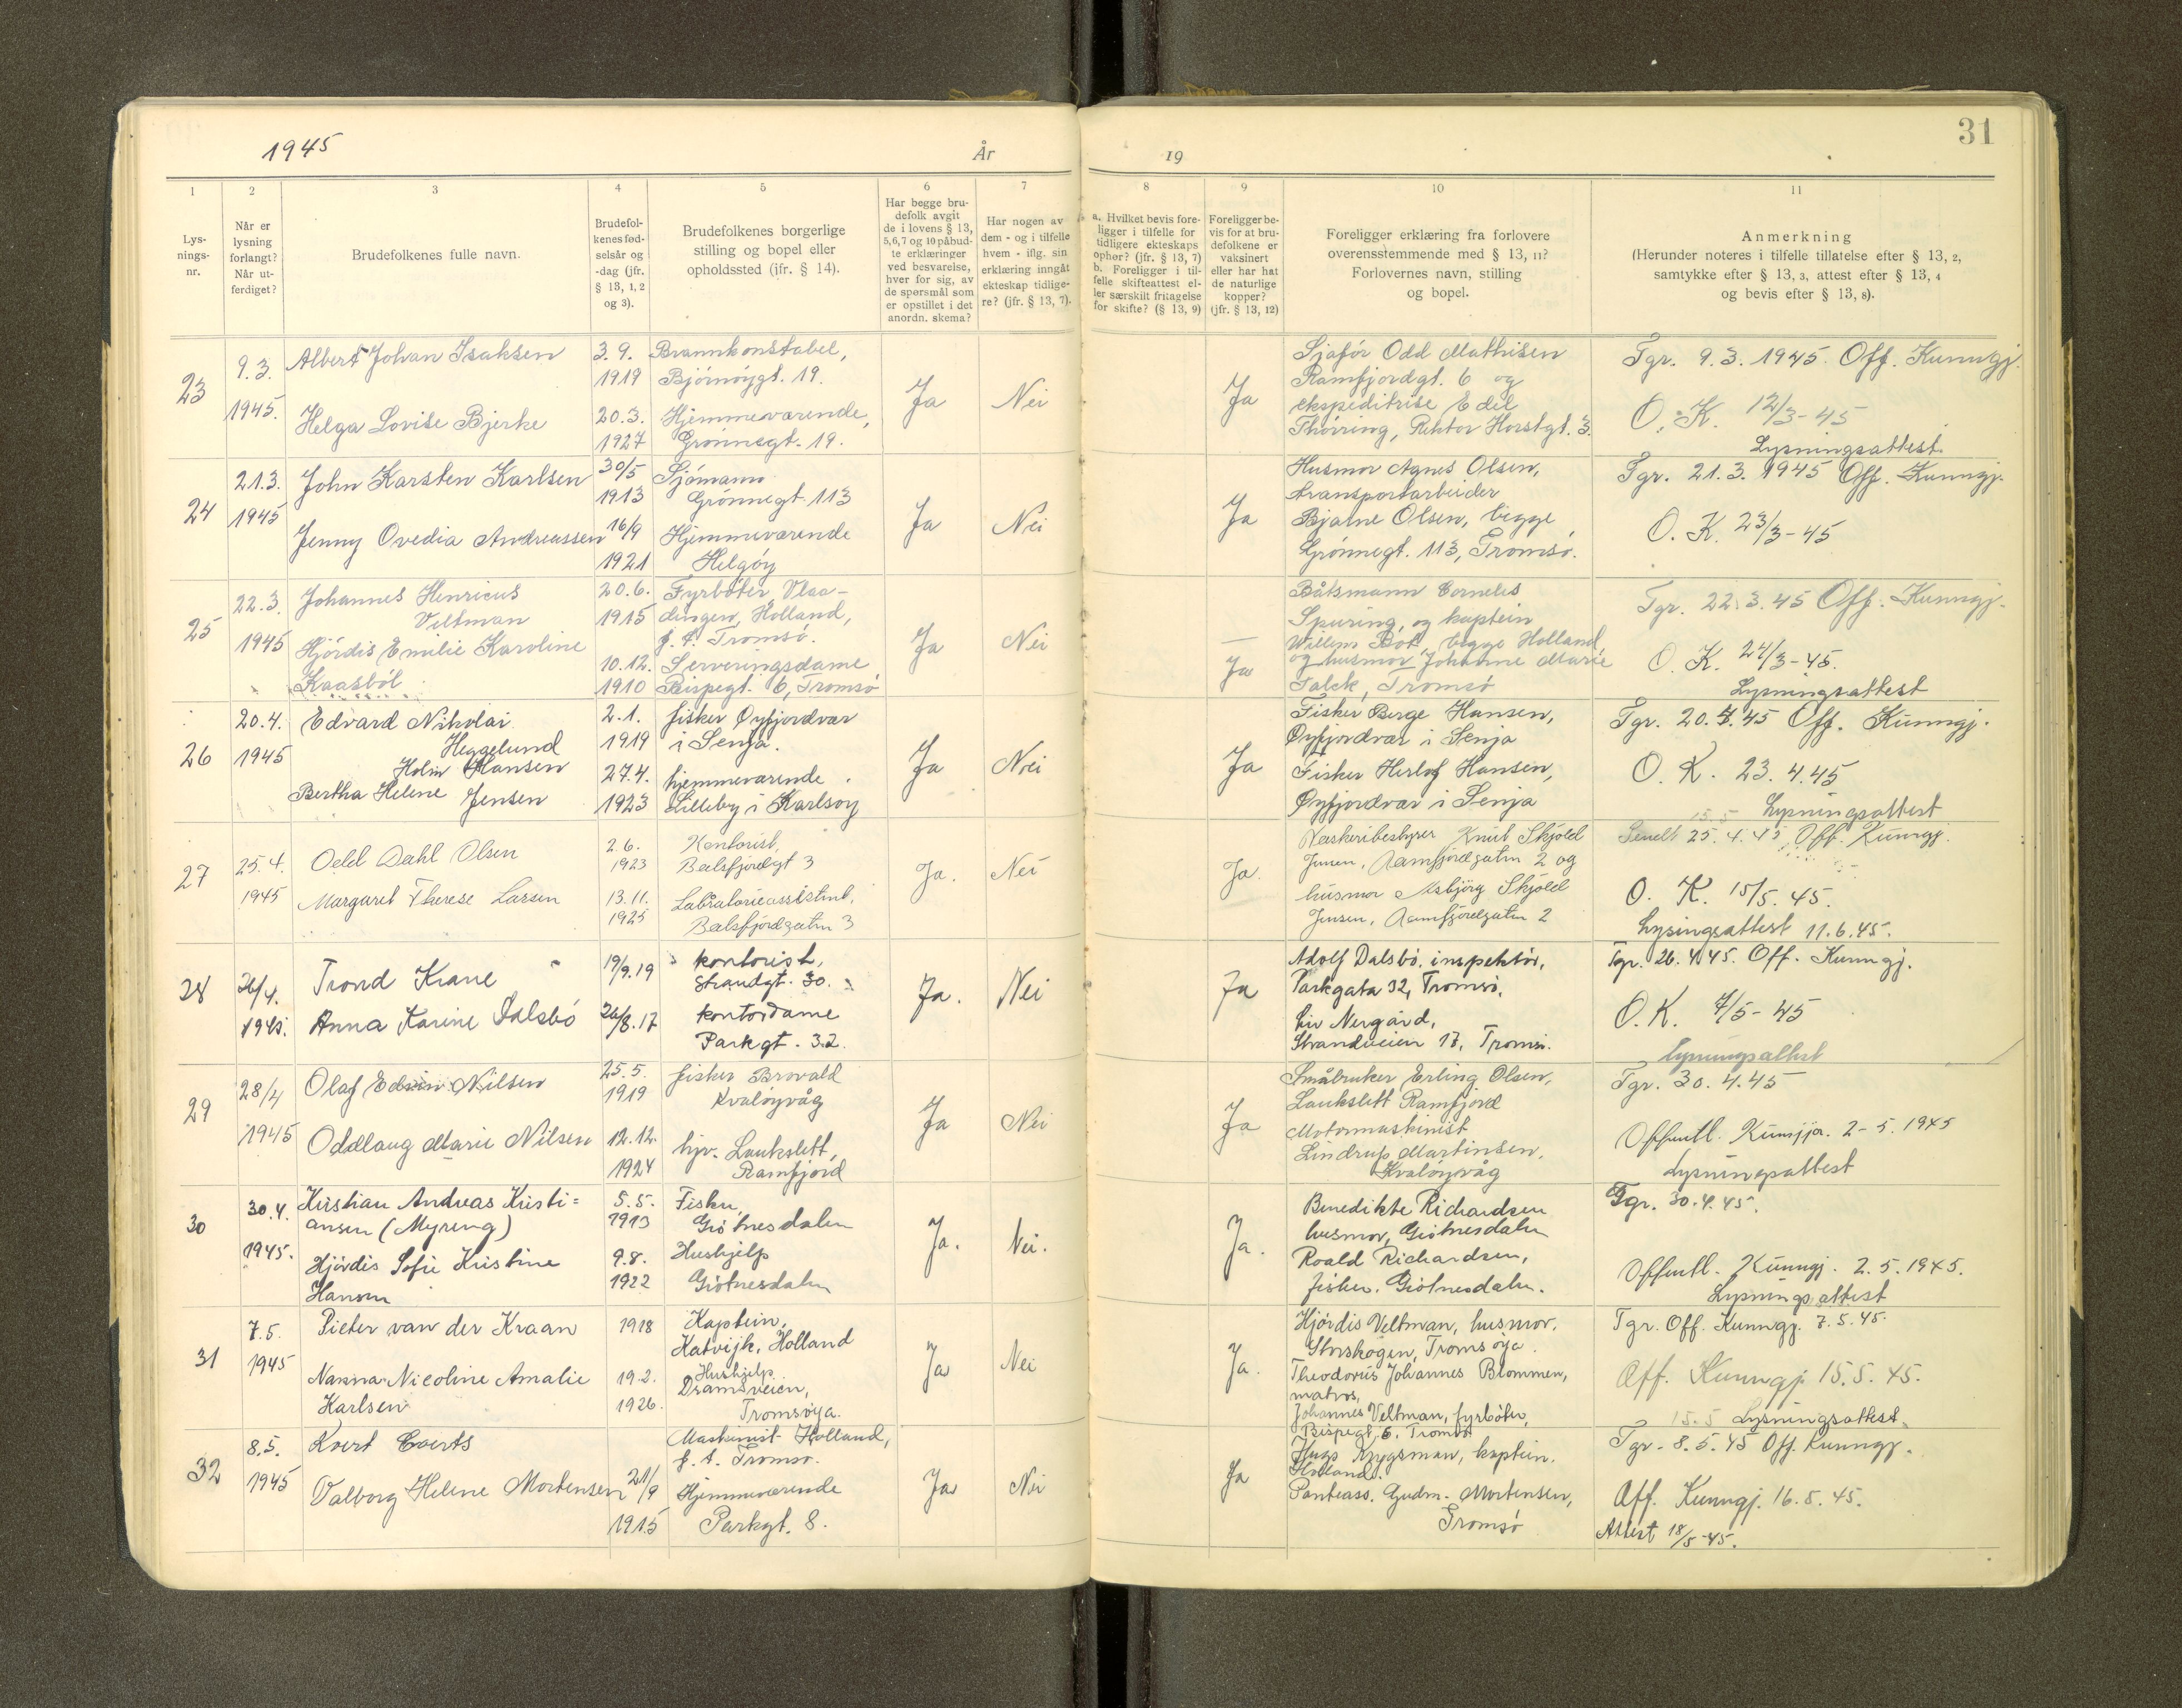 1945
År
19
31
1
2
3
4
5
6
7
8
9
10
11
Lys-
nings-
nr.
Når er
lysning
forlangt?
Når ut-
ferdiget?
Brudefolkenes fulle navn.
Brudefol-
kenes fød-
selsår og
-dag (jfr.
§ 13, 1, 2
og 3).
Brudefolkenes borgerlige
stilling og bopel eller
opholdssted (jfr. § 14).
Har begge bru-
defolk avgit
de i lovens § 13,
5,6,7 og 10 påbud-
te erklæringer
ved besvarelse,
hver for sig, av
de spørsmål som
er opstillet i det
anordn. skema?
Har nogen av
dem - og i tilfelle
hvem - iflg. sin
erklæring inngåt
ekteskap tidlige-
re? (jfr. § 13, 7).
a. Hvilket bevis fore-
ligger i tilfelle for
tidligere ekteskaps
ophør? (jfr. § 13, 7)
b. Foreligger i til-
felle skifteattest el-
ler særskilt fritagelse
for skifte? (§ 13, 9)
Foreligger be-
vis for at bru-
defolkene er
vaksinert
eller har hat
de naturlige
kopper?
(jfr. § 13, 12)
Foreligger erklæring fra forlovere
overensstemmende med § 13, 11?
Forlovernes navn, stilling
og bopel.
Anmerkning
(Herunder noteres i tilfelle tillatelse efter § 13, 2,
samtykke efter § 13, 3, attest efter § 13, 4
og bevis efter § 13, 8).
23
9.3.
1945.
Albert Johan Isaksen
Helga Lovise Bjerke
3.9.
1919
20.3.
1927
Brannkonstabel,
Bjørnøygt. 19.
Hjemmeværende,
Grønnegt. 19.
Ja
Nei
Ja
Sjåfør Odd Mathisen
Ramfjordgt. 6 og
ekspeditrise Edel
Thörring, Rektor Horstgt. 3.
Tgr. 9.3. 1945. Off. Kunngj.
O.K. 12/3-45
Lysningsattest.
24
21.3.
1945
John Karsten Karlsen
Jenny Ovedia Andreassen
30/5
1913
16/9
1921
Sjømann
Grønnegt. 113
Hjemmeværende
Helgøy
Ja
Nei
Ja
Husmor Agnes Olsen,
transportarbeider
Bjarne Olsen, begge
Grønnegt. 113, Tromsø.
Tgr. 21.3. 1945 Off. Kunngj.
O.K. 23/3-45
25
22.3.
1945
Johannes Henricus
Veltman
Hjørdis Emilie Karoline
Kaasbøl
20.6.
1915
10.12.
1910
Fyrbøter, Vlaa-
dingen, Holland,
f. t. Tromsø.
Serveringsdame
Bispegt. 6, Tromsø
Ja
Nei
—
Ja
Båtsmann Cornelis
Spuring, og kaptein
Willem Bot, begge Holland
og husmor Johanne Marie
Falck, Tromsø
Tgr. 22.3.45 Off. Kunngj.
O.K. 24/3-45.
Lysningsattest
26
20.4.
1945
Edvard Nikolai
Heggelund
Holm Hansen
Bertha Helene Jensen
2.1.
1919
27.4.
1923
fisker Øyfjordvær
i Senja.
hjemmeværende
Lilleby i Karlsøy
Ja
Nei
Ja
Fisker Berge Hansen,
Øyfjordvær i Senja
Fisker Herlof Hansen,
Øyfjordvær i Senja
Tgr. 20.4.45 Off. Kunngj.
O.K. 23.4.45
15.5 Lysningsattest
27
25.4.
1945
Odd Dahl Olsen
Margaret Therese Larsen
2.6.
1923
13.11.
1925
Kontorist,
Balsfjordgt 3
Laboratorieassistent,
Balsfjordgaten 3
Ja.
Nei
Ja.
Vaskeribestyrer Knut Skjold
Jensen, Ramfjordgaten 2 og
husmor Asbjörg Skjold
Jensen, Ramfjordgaten 2
Sendt 25.4.45 Off. Kunngj.
O.K. 15/5.45.
Lysingsattest 11.6.45.
28
26/4.
1945.
Trond Krane
Anna Karine Dalsbö
19/9.19
26/8.17
kontorist,
Strandgt. 30.
kontordame
Parkgt. 32.
Ja.
Nei
Ja
Adolf Dalsbö, inspektör,
Parkgata 32, Tromsø.
Liv Nergård,
Strandveien 17, Tromsø.
Tgr. 26.4.45. Off. Kunngj.
O.K. 7/5-45
Lysningsattest
29
28/4
1945
Olaf Edvin Nilsen
Oddlaug Marie Nilsen
25.5.
1919
12.12.
1924
fisker Brovald
Kvaløyvåg
hjv. Laukslett,
Ramfjord
Ja
Nei
Ja
Småbruker Erling Olsen,
Laukslett Ramfjord
Motormaskinist
Lindrup Martinsen,
Kvaløyvåg
Tgr. 30.4.45
Offentl. Kunngjør. 2-5.1945
Lysningsattest
30
30.4.
1945.
Kristian Andreas Kristi=
ansen (Myreng)
Hjördis Sofie Kristine
Hansen
5.5.
1913
9.8.
1922
Fisker,
Grötnesdalen
Hushjelp
Grötnesdalen
Ja.
Nei.
Ja.
Benedikte Richardsen
husmor, Grötnesdalen
Roald Richardsen,
fisker, Grötnesdalen.
Tgr. 30.4.45.
Offentl. Kunngj. 2.5.1945.
Lysningsattest
31
7.5.
1945
Pieter van der Kraan
Nanna Nicoline Amalie
Karlsen
1918
19.2.
1926.
Kaptein,
Katvijk, Holland
Hushjelp
Dramsveien,
Tromsøya.
Ja
Nei
Ja.
Hjørdis Veltman, husmor.
Storskogen, Tromsøya.
Theodorus Johannes Blommen,
matros,
Johannes Veltman, fyrbøter,
Bispegt 6, Tromsø
Tgr. Off. Kunngj. 7.5.45.
Off. Kunngj 15.5.45.
15.5 Lysningsattest
32
8.5.
1945
Koert Coerts
Valborg Helene Mortensen
21/9
1915
Maskinist Holland,
f. t. Tromsø.
Hjemmeværende
Parkgt. 8.
Ja
Nei
Ja
Hugo Krygsman, kaptein.
Holland.
Panteass. Gudm. Mortensen,
Tromsø
Tgr. 8.5.45 Off. Kunngj.
Off. Kunngj. 16.5.45.
Attest 18/5-45.